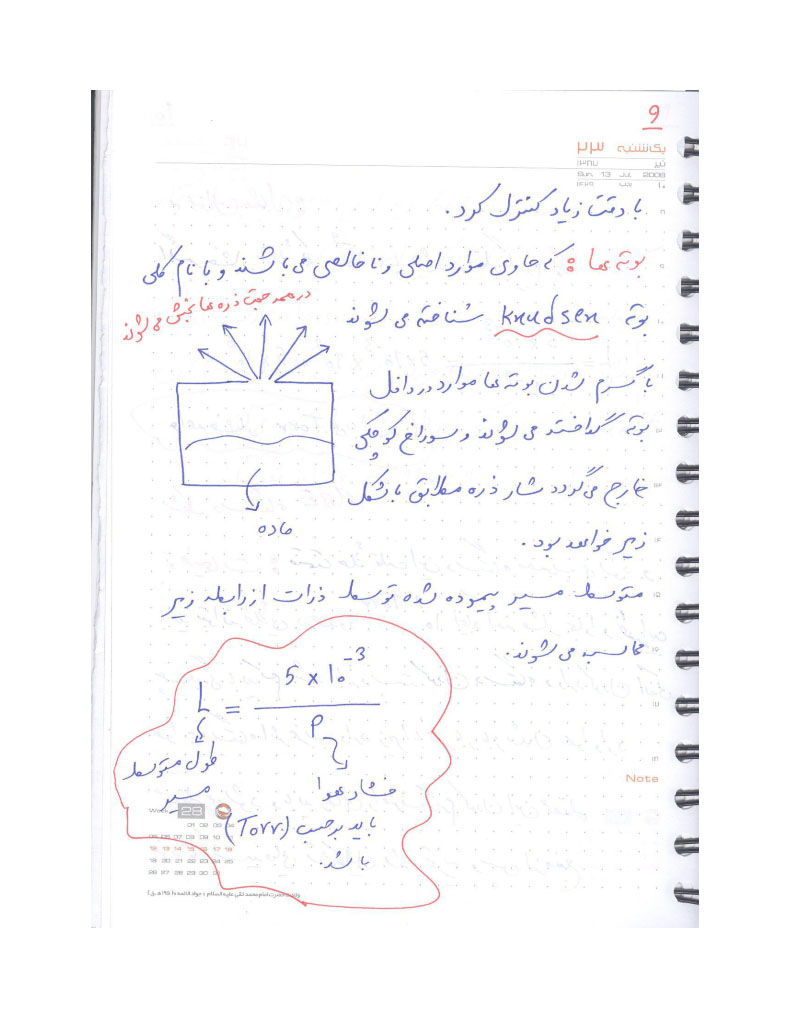 و
یکشنبه ۲۳
تیر ۱۳۸۷
Sun. 13 Jul. 2008
۱۰ رجب ۱۴۲۹
با دقت زیاد کنترل کرد.
بوته ها: که حاوی موارد اصلی و ناخالصی می باشند و با نام کلی
بوته Knudsen شناخته می شوند
در همه جهت ذره ها پخش می شوند
با گرم شدن بوته ها موارد در داخل
بوته گداخته می شوند و سوراخ کوچکی
خارج می گردد شار ذره مطابق با شکل
زیر خواهد بود.
ماده
متوسط مسیر پیموده شده توسط ذرات از رابطه زیر
محاسبه می شوند.
L = 5 × 10⁻³ / P
طول متوسط
مسیر
فشار هوا
باید برحسب (Torr)
باشد.
Note
Week 28
01 02 03 04
05 06 07 08 09 10 11
12 13 14 15 16 17 18
19 20 21 22 23 24 25
26 27 28 29 30 31
ولادت حضرت امام محمد تقی علیه السلام «جواد الائمه» (۱۹۵ ه‍.ق)